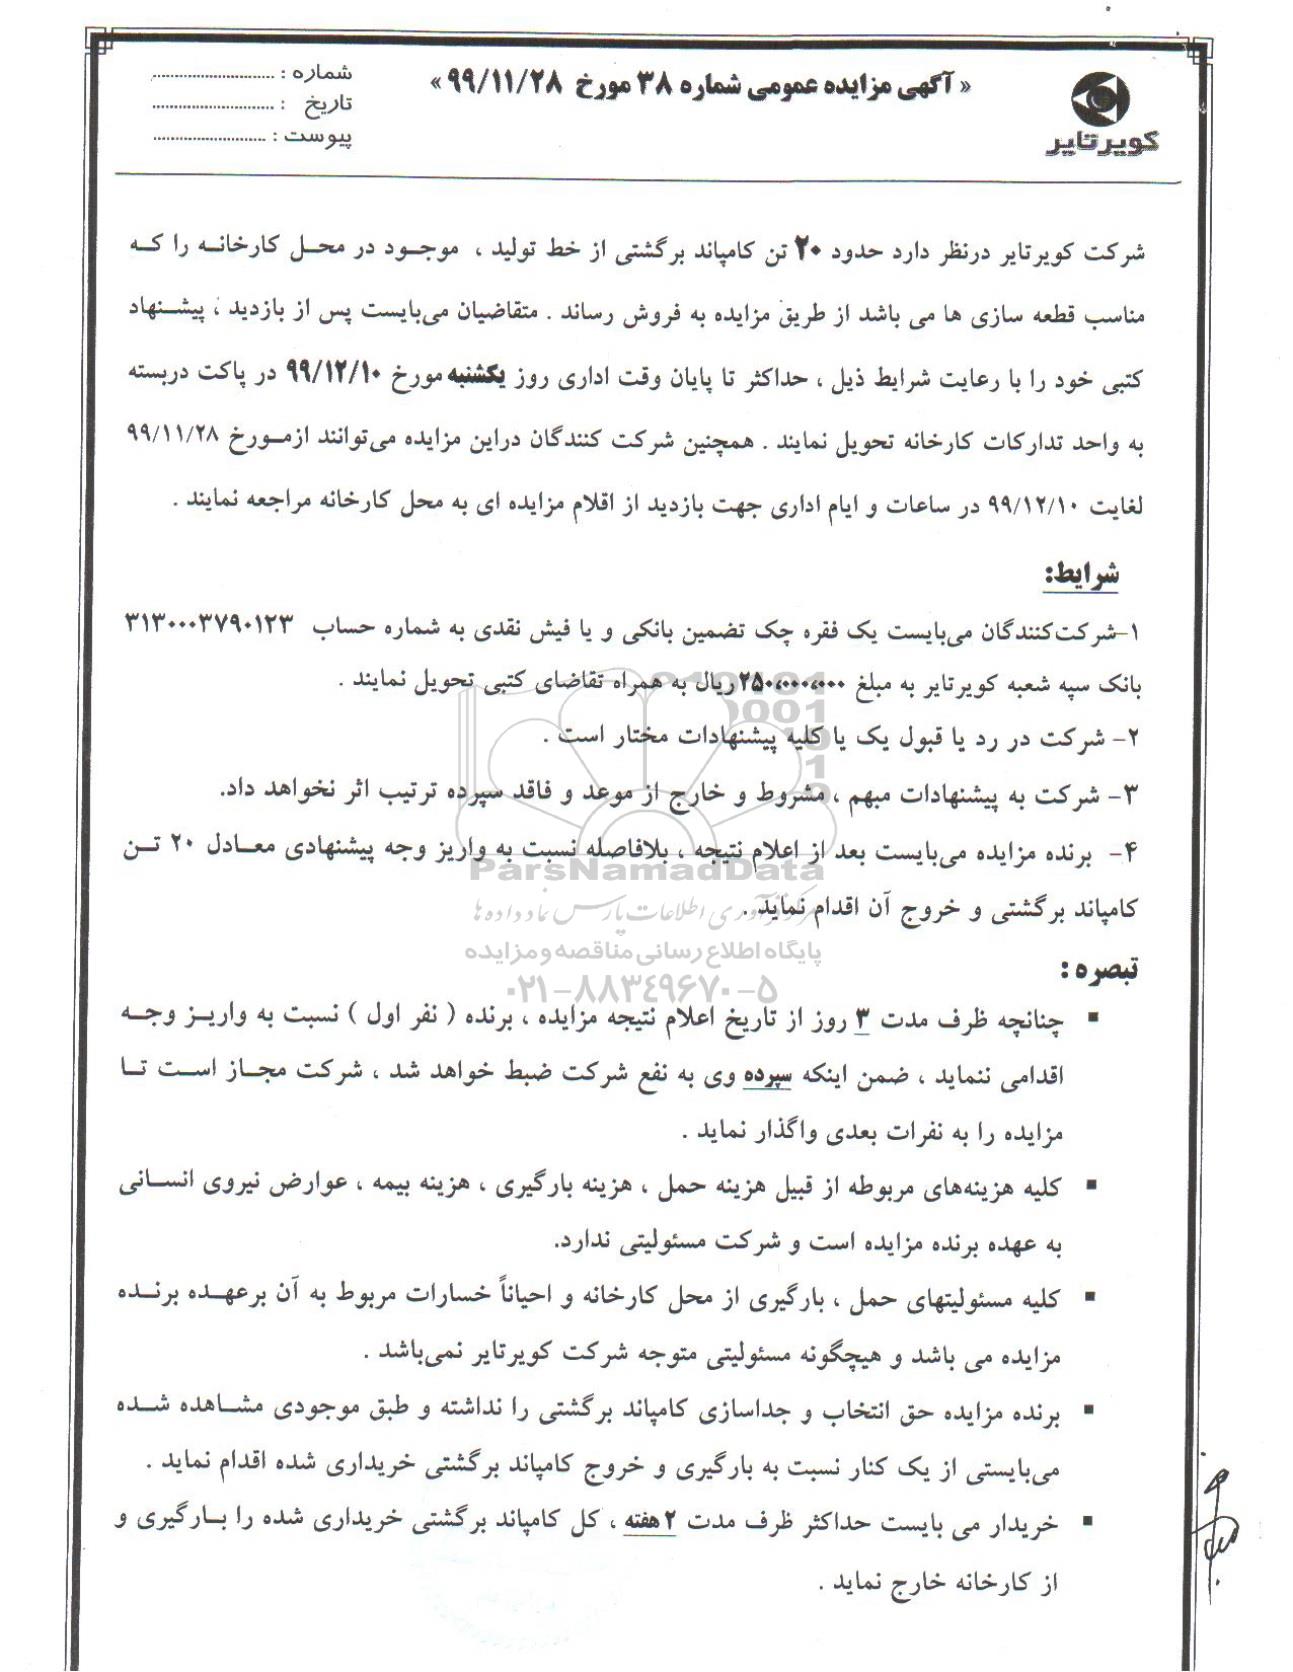 « آگهی مزایده عمومی شماره ۳۸ مورخ ۹۹/۱۱/۲۸ »
شماره : ............................
تاریخ : ............................
پیوست : ..........................
کویرتایر
شرکت کویرتایر درنظر دارد حدود ۲۰ تن کامپاند برگشتی از خط تولید ، موجـود در محـل کارخانـه را کـه
مناسب قطعه سازی ها می باشد از طریق مزایده به فروش رساند . متقاضیان می‌بایست پس از بازدید ، پیشـنهاد
کتبی خود را با رعایت شرایط ذیل ، حداکثر تا پایان وقت اداری روز یکشنبه مورخ ۹۹/۱۲/۱۰ در پاکت دربسته
به واحد تدارکات کارخانه تحویل نمایند . همچنین شرکت کنندگان دراین مزایده می‌توانند ازمـورخ ۹۹/۱۱/۲۸
لغایت ۹۹/۱۲/۱۰ در ساعات و ایام اداری جهت بازدید از اقلام مزایده ای به محل کارخانه مراجعه نمایند .
شرایط:
۱-شرکت‌کنندگان می‌بایست یک فقره چک تضمین بانکی و یا فیش نقدی به شماره حساب ۳۱۳۰۰۰۳۷۹۰۱۲۳
بانک سپه شعبه کویرتایر به مبلغ ۲۵۰،۰۰۰،۰۰۰ریال به همراه تقاضای کتبی تحویل نمایند .
۲- شرکت در رد یا قبول یک یا کلیه پیشنهادات مختار است .
۳- شرکت به پیشنهادات مبهم ، مشروط و خارج از موعد و فاقد سپرده ترتیب اثر نخواهد داد.
۴- برنده مزایده می‌بایست بعد از اعلام نتیجه ، بلافاصله نسبت به واریز وجه پیشنهادی معـادل ۲۰ تـن
ParsNamadData
کامپاند برگشتی و خروج آن اقدام نماید .
مرکز فرآوری اطلاعات پارس نماد داده ها
پایگاه اطلاع رسانی مناقصه و مزایده
تبصره :
۰۲۱-۸۸۳۴۹۶۷۰-۵
▪ چنانچه ظرف مدت ۳ روز از تاریخ اعلام نتیجه مزایده ، برنده ( نفر اول ) نسبت به واریـز وجـه
اقدامی ننماید ، ضمن اینکه سپرده وی به نفع شرکت ضبط خواهد شد ، شرکت مجـاز اسـت تـا
مزایده را به نفرات بعدی واگذار نماید .
▪ کلیه هزینه‌های مربوطه از قبیل هزینه حمل ، هزینه بارگیری ، هزینه بیمه ، عوارض نیروی انسـانی
به عهده برنده مزایده است و شرکت مسئولیتی ندارد.
▪ کلیه مسئولیتهای حمل ، بارگیری از محل کارخانه و احیاناً خسارات مربوط به آن برعهـده برنـده
مزایده می باشد و هیچگونه مسئولیتی متوجه شرکت کویرتایر نمی‌باشد .
▪ برنده مزایده حق انتخاب و جداسازی کامپاند برگشتی را نداشته و طبق موجودی مشـاهده شـده
می‌بایستی از یک کنار نسبت به بارگیری و خروج کامپاند برگشتی خریداری شده اقدام نماید .
▪ خریدار می بایست حداکثر ظرف مدت ۲ هفته ، کل کامپاند برگشتی خریداری شده را بـارگیری و
از کارخانه خارج نماید .